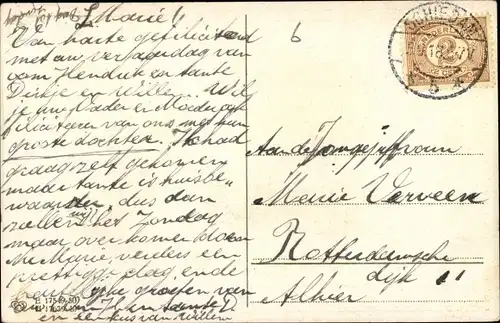 L. Marie!
Van harte gefeliciteerd
met uw verjaardag van
oom Hendrik en tante
Dirkje en Willem. Wil
je uw Vader en Moeder ook
feliciteren van ons met hun
groste dochter. Ik had
graag zelf gekomen
maar tante is huisbe-
waarster, dus dan
zullen wij het Zondag
maar over komen
Marie, verders een
prettige dag, en de
groeten van
tante D
en een kus van Willem
6
SCHIEDAM
NEDERLAND
2
CENT
Aan de Jongejufvrouw
Marie Verveen
Rotterdamsche
dijk 11
Alhier